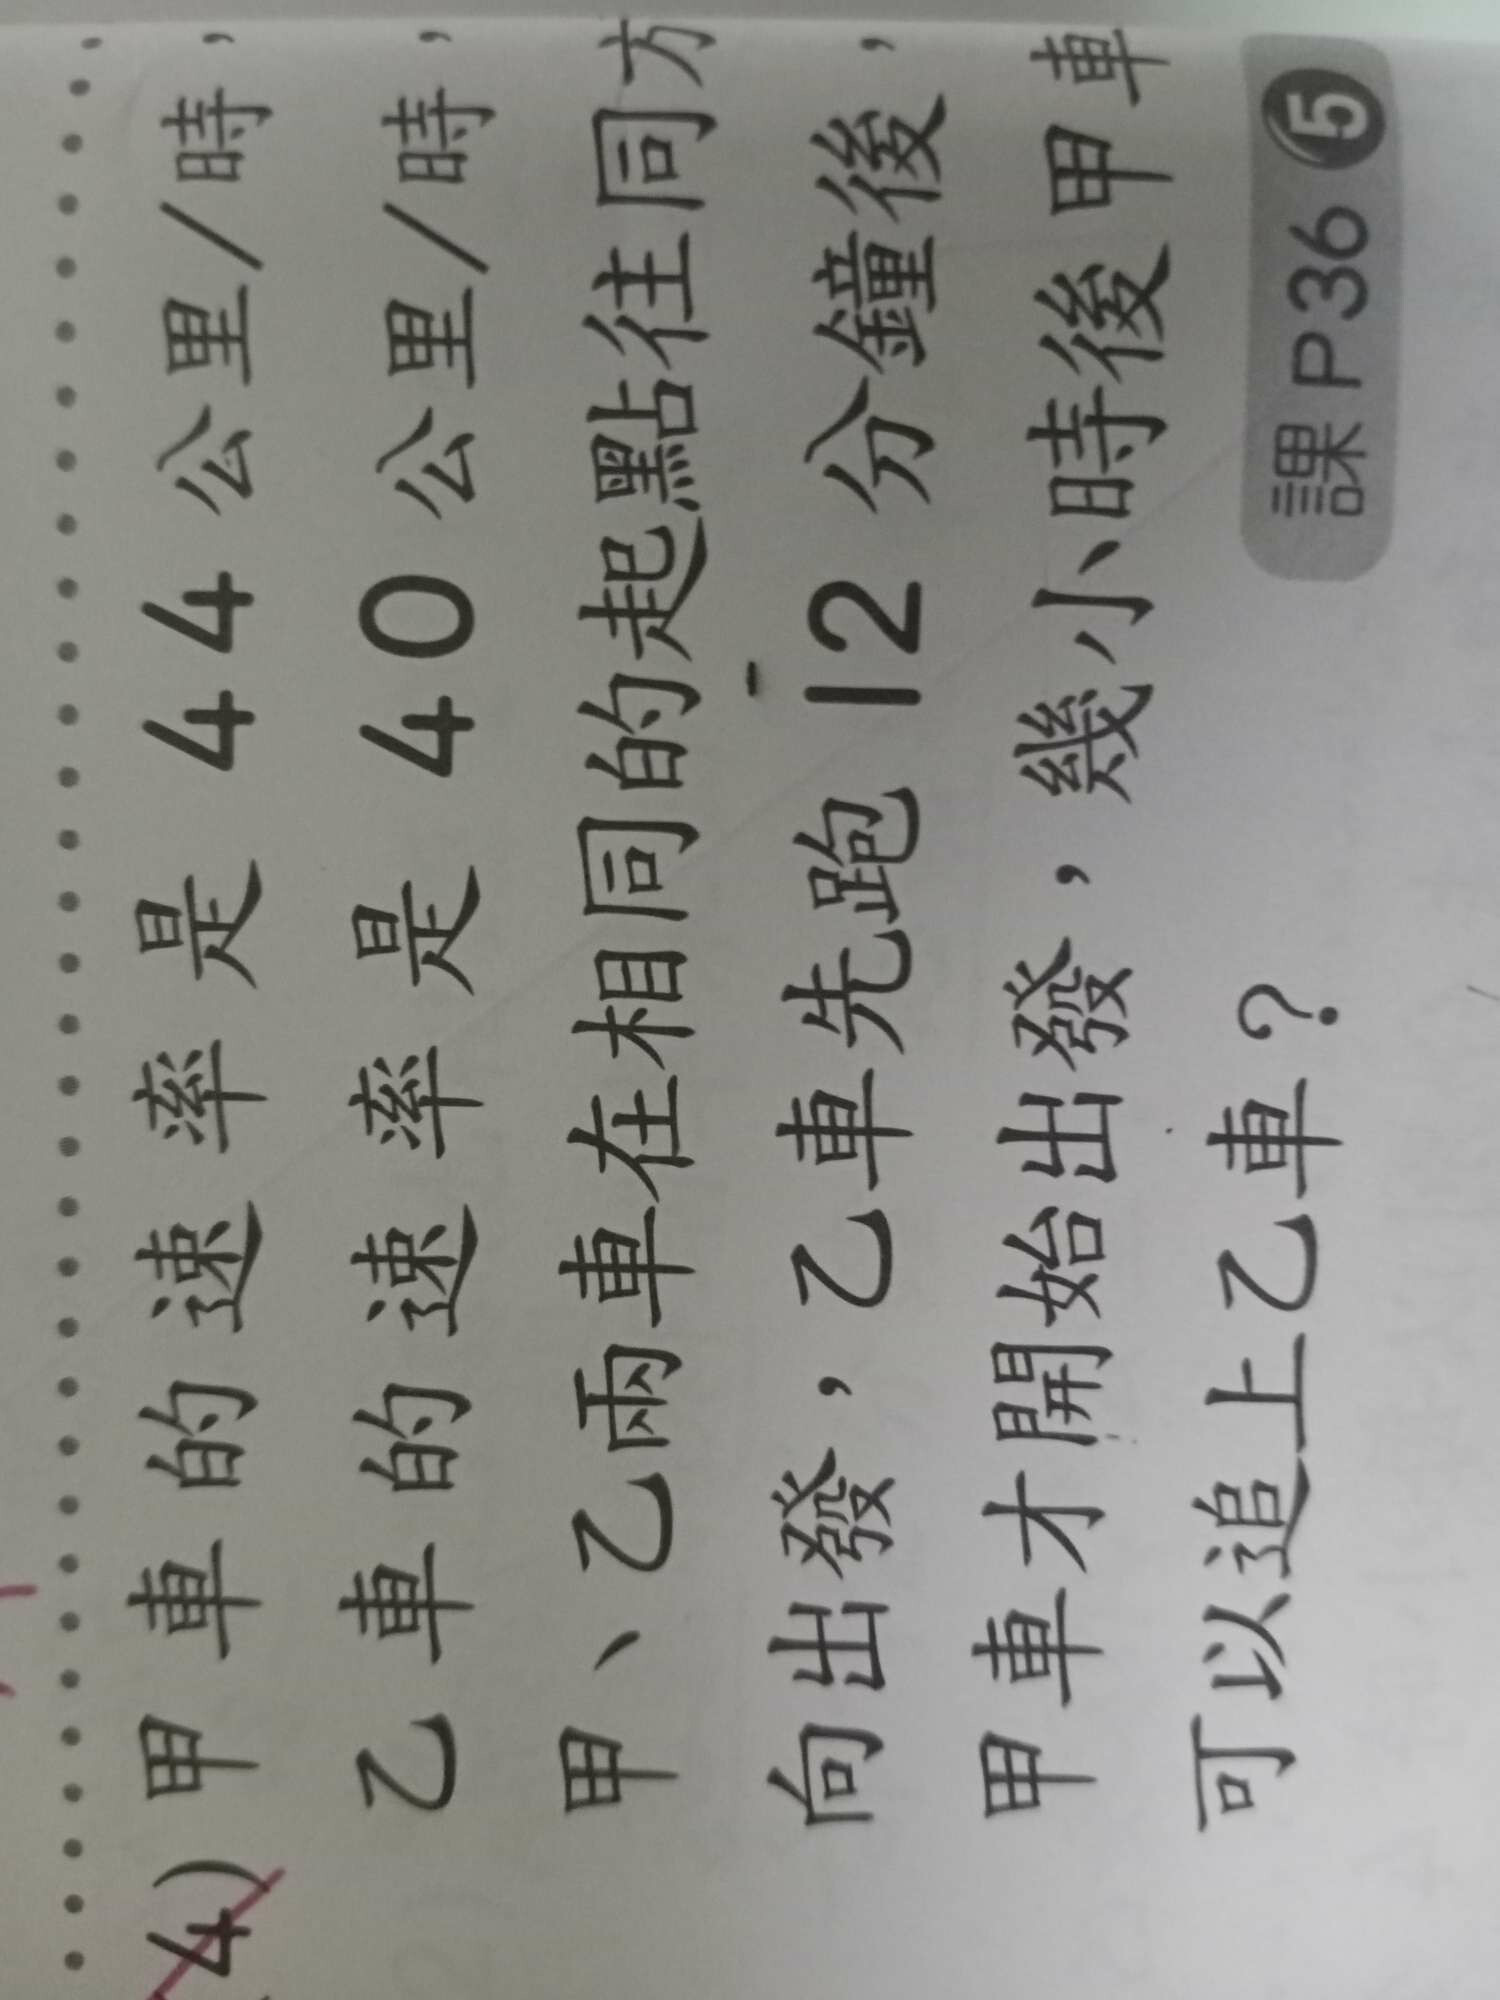 4) 甲車的速率是44公里/時，
乙車的速率是40公里/時，
甲、乙兩車在相同的起點往同方
向出發，乙車先跑12分鐘後，
甲車才開始出發，幾小時後甲車
可以追上乙車？
課P36 5